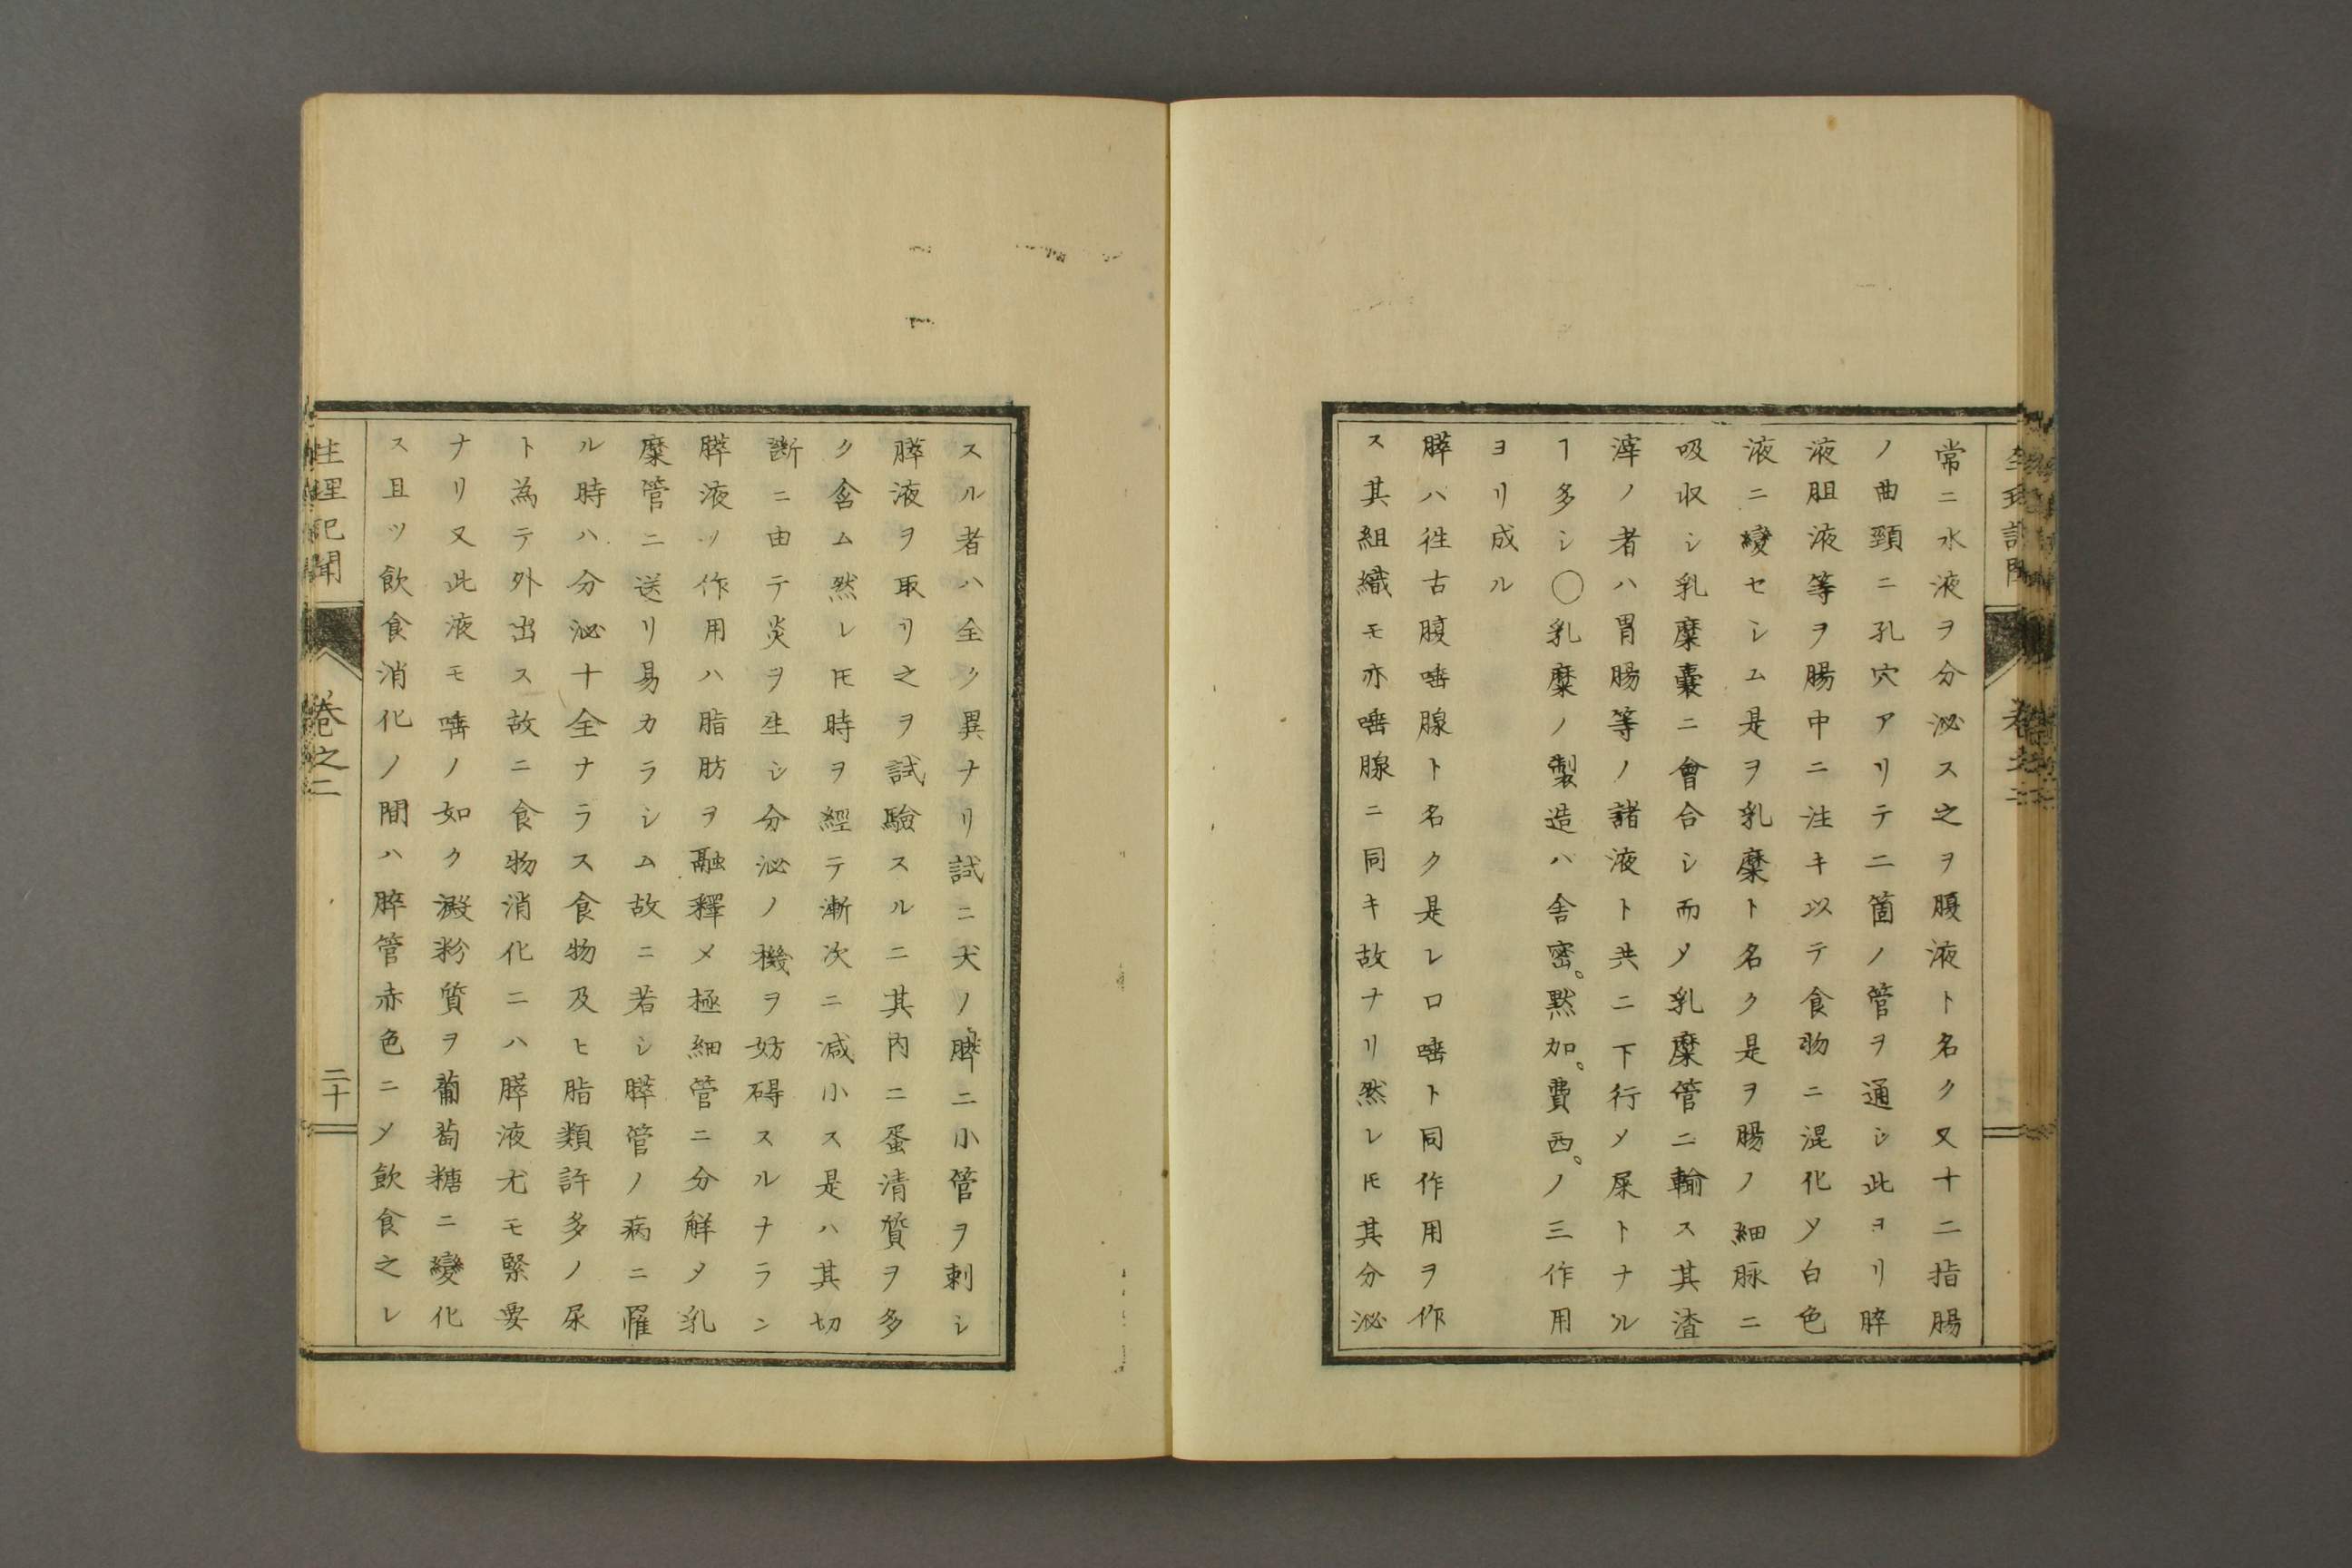 常ニ水液ヲ分泌ス之ヲ腹液ト名ク又十二指腸
ノ曲頸ニ孔穴アリテ二箇ノ管ヲ通シ此ヨリ膵
液胆液等ヲ腸中ニ注キ以テ食物ニ混化ソ白色
液ニ變セシム是ヲ乳糜ト名ク是ヲ腸ノ細脉ニ
吸收シ乳糜嚢ニ會合シ而メ乳糜管ニ輸ス其渣
滓ノ者ハ胃腸等ノ諸液ト共ニ下行メ屎トナル
ヿ多シ〇乳糜ノ製造ハ舎密。黙加。費西。ノ三作用
ヨリ成ル
膵ハ徃古腹唾腺ト名ク是レ口唾ト同作用ヲ作
ス其組織モ亦唾腺ニ同キ故ナリ然レ𪜈其分泌
スル者ハ全ク異ナリ試ニ犬ノ膵ニ小管ヲ刺シ
膵液ヲ取リ之ヲ試驗スルニ其內ニ蛋清質ヲ多
ク含ム然レ𪜈時ヲ經テ漸次ニ減小ス是ハ其切
斷ニ由テ炎ヲ生シ分泌ノ機ヲ妨碍スルナラン
膵液ノ作用ハ脂肪ヲ融釋メ極細管ニ分解メ乳
糜管ニ送リ易カラシム故ニ若シ膵管ノ病ニ罹
ル時ハ分泌十全ナラス食物及ヒ脂類許多ノ尿
ト為テ外出ス故ニ食物消化ニハ膵液尤モ緊要
ナリ又此液モ唾ノ如ク澱粉質ヲ葡萄糖ニ變化
ス且ツ飲食消化ノ間ハ膵管赤色ニメ飲食之レ
生理記聞
卷之二
二十